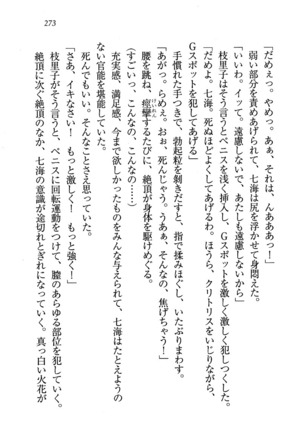 273
「だめ、やめっ。あぁ、それは、んああああっ！
弱い部分を責めあげられて、七海は尻を浮かせて身悶えた。
「いいわ、イッて。遠慮しないで、あたしも遠慮しないから」
枝里子がそう言うとペニスを浅く挿入し、Gスポットを激しく犯しつくした。
「だめよ、七海。死ぬほどよくしてあげるわ。ほうら、クリトリスをいじりながら、
Gスポットを犯してあげる」
手慣れた手つきで、勃起粒を剝きだすと、指で揉みほぐし、いたぶりまわす。
「あがっ。らめぇ。おぉ、死んじゃう。うあぁ、そんなの、焦げちゃう！」
腰を跳ね、痙攣するたびに、絶頂が身体を駆けめぐる。
けいれん
（すごいっ、こんなの、こんなの……）
充実感、満足感、今まで欲しかったものをみんな与えられて、七海はたとえようの
ない官能を堪能していた。
死んでもいい。そんなことさえ思っていた。
「さあ、イキなさい！　もっと激しく！　もっと強く！」
枝里子がそう言うと、ペニスに回転運動をつけて、膣のあらゆる部位を犯していく。
絶頂に次ぐ絶頂のなか、七海の意識が途切れとぎれになっていく。真っ白い火花が